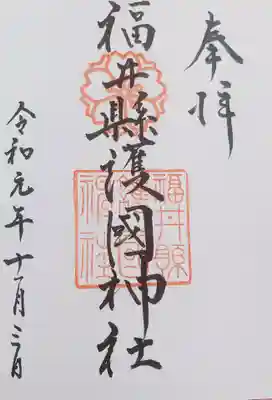 奉拝
福井縣護國神社
福井縣護國神社
令和元年十一月三日